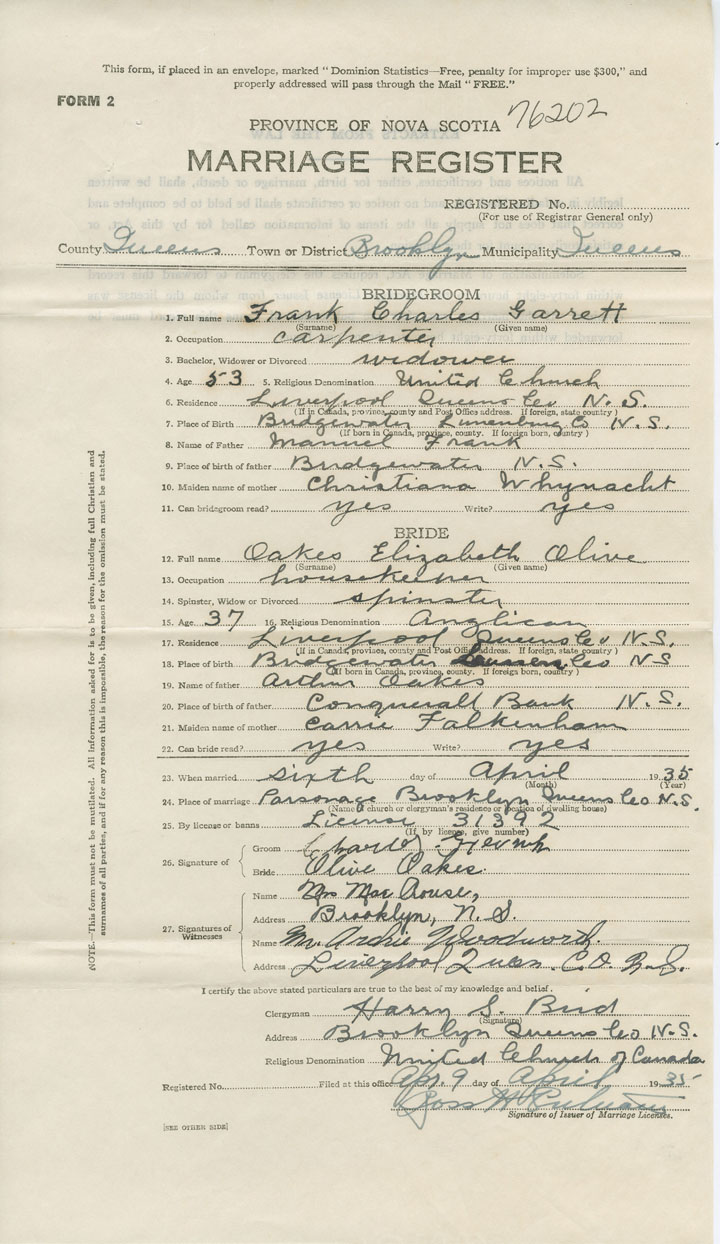 This form, if placed in an envelope, marked "Dominion Statistics—Free, penalty for improper use $300," and
properly addressed will pass through the Mail "FREE."
FORM 2
PROVINCE OF NOVA SCOTIA 76202
MARRIAGE REGISTER
REGISTERED No.
(For use of Registrar General only)
County Queens Town or District Brooklyn Municipality Queens
BRIDEGROOM
1. Full name Frank Charles Garrett
(Surname) (Given name)
2. Occupation carpenter
3. Bachelor, Widower or Divorced widower
4. Age 53 5. Religious Denomination United Church
6. Residence Liverpool Queens Co N.S.
(If in Canada, province, county and Post Office address. If foreign, state country)
7. Place of Birth Bridgewater Lunenburg Co N.S.
(If born in Canada, province, county. If foreign born, country)
8. Name of Father Manuel Frank
9. Place of birth of father Bridgewater N.S.
10. Maiden name of mother Christiana Whynacht
11. Can bridegroom read? yes Write? yes
BRIDE
12. Full name Oakes Elizabeth Olive
(Surname) (Given name)
13. Occupation housekeeper
14. Spinster, Widow or Divorced spinster
15. Age 37 16. Religious Denomination Anglican
17. Residence Liverpool Queens Co N.S.
(If in Canada, province, county and Post Office address. If foreign, state country)
18. Place of birth Bridgewater Co NS
(If born in Canada, province, county. If foreign born, country)
19. Name of father Arthur Oakes
20. Place of birth of father Conquerall Bank N.S.
21. Maiden name of mother Carrie Falkenham
22. Can bride read? yes Write? yes
23. When married sixth day of April 1935
(Month) (Year)
24. Place of marriage Parsonage Brooklyn Queens Co N.S.
(Name of church or clergyman's residence or position of dwelling house)
25. By license or banns License 31392
(If by license, give number)
26. Signature of
Groom Charles
Bride Olive Oakes.
27. Signatures of Witnesses
Name Mrs Mae Rouse,
Address Brooklyn, N.S.
Name M. Archie Woodworth.
Address Liverpool Queen. C.O. N.S.
I certify the above stated particulars are true to the best of my knowledge and belief.
Clergyman Harry S. Bird
(Signature)
Address Brooklyn Queens Co N.S.
Religious Denomination United Church of Canada
Registered No. Filed at this office Apr. 9 day of April 1935
Signature of Issuer of Marriage Licenses.
[SEE OTHER SIDE]
NOTE.—This form must not be mutilated. All information asked for is to be given, including full Christian and
surnames of all parties, and if for any reason this is impossible, the reason for the omission must be stated.